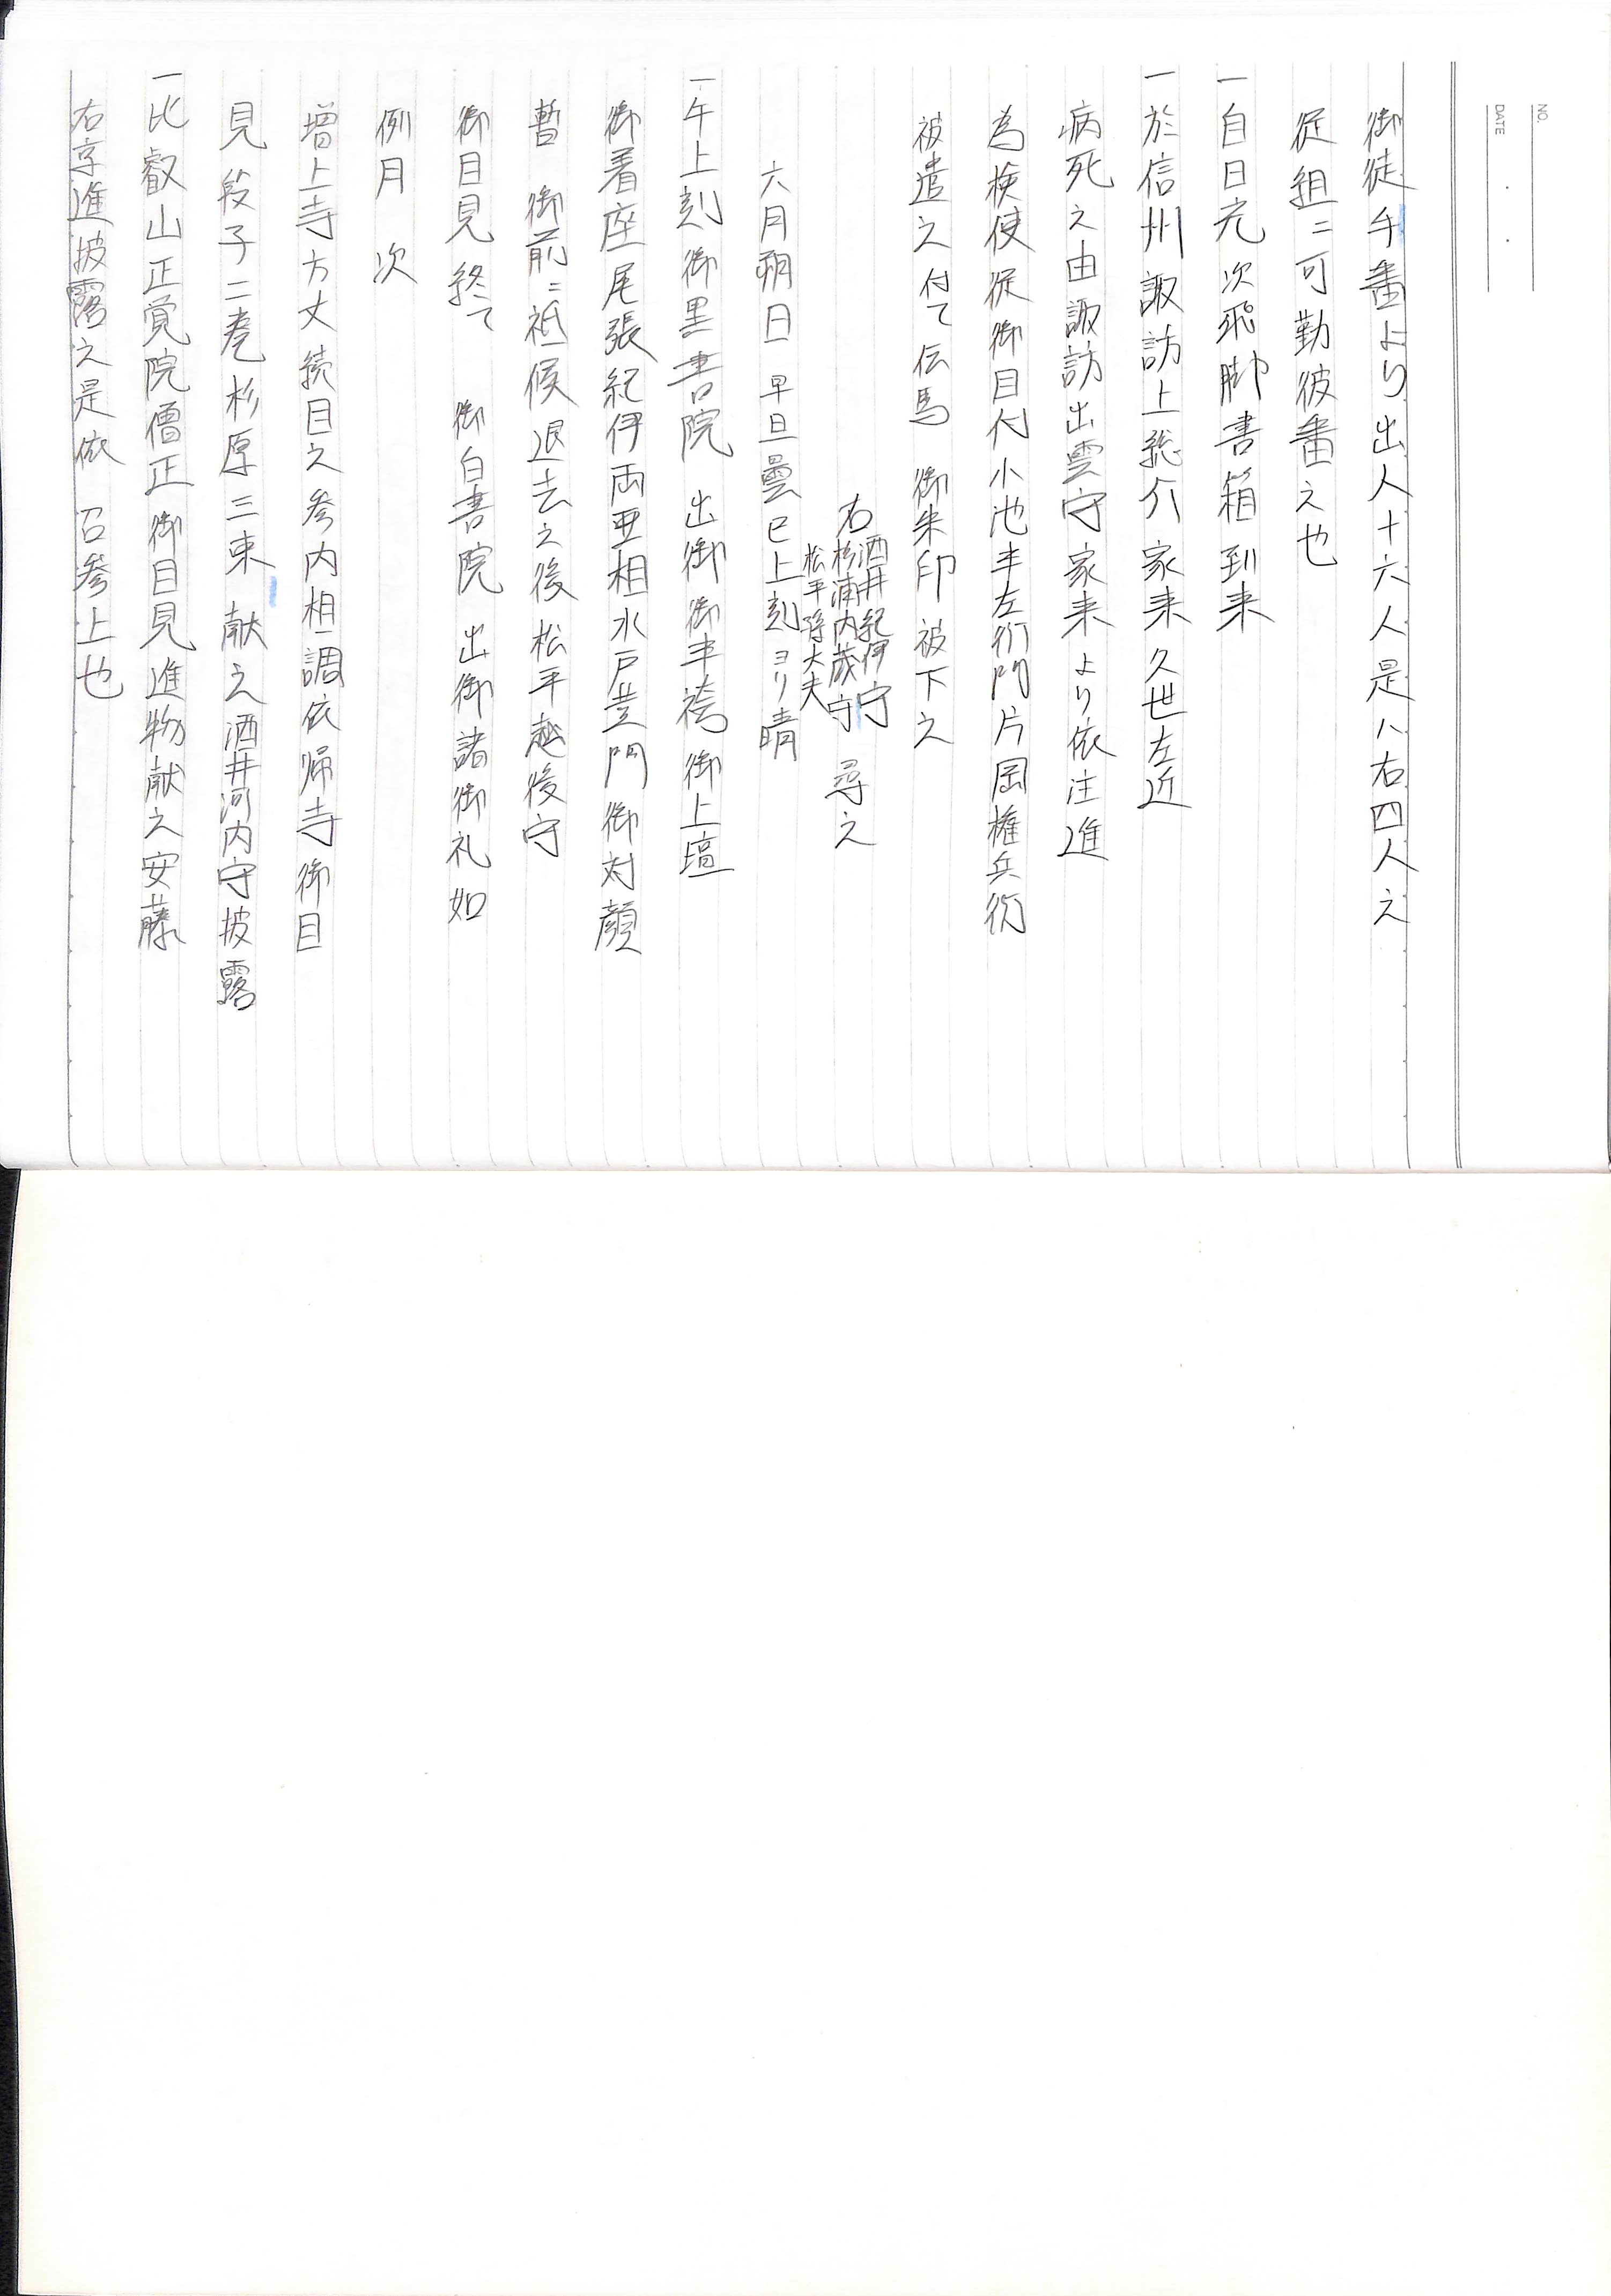 NO.
DATE
御徒午番より出人十六人是ハ右四人之
従組ニ可勤彼番之也
一自日光次飛脚書箱到来
一於信州諏訪上総介家来久世左近
病死之由諏訪出雲守家来より依注進
為検使従御目付小池半左衛門片岡権兵衛
被遣之付て伝馬 御朱印被下之
右酒井紀伊守
杉浦内蔵守 尋之
松平隼大夫
六月朔日 早旦曇巳上刻ヨリ晴
一午上刻御黒書院 出御御半袴御上壇
御着座尾張紀伊両亜相水戸黄門御対顔
暫 御前ニ祗候退去之後松平越後守
御目見終て 御白書院 出御諸御礼如
例月次
増上寺方丈続目之参内相調依帰寺御目
見段子二巻杉原三束献之酒井河内守披露
一比叡山正覚院僧正御目見進物献之安藤
右京進披露之是依 召参上也